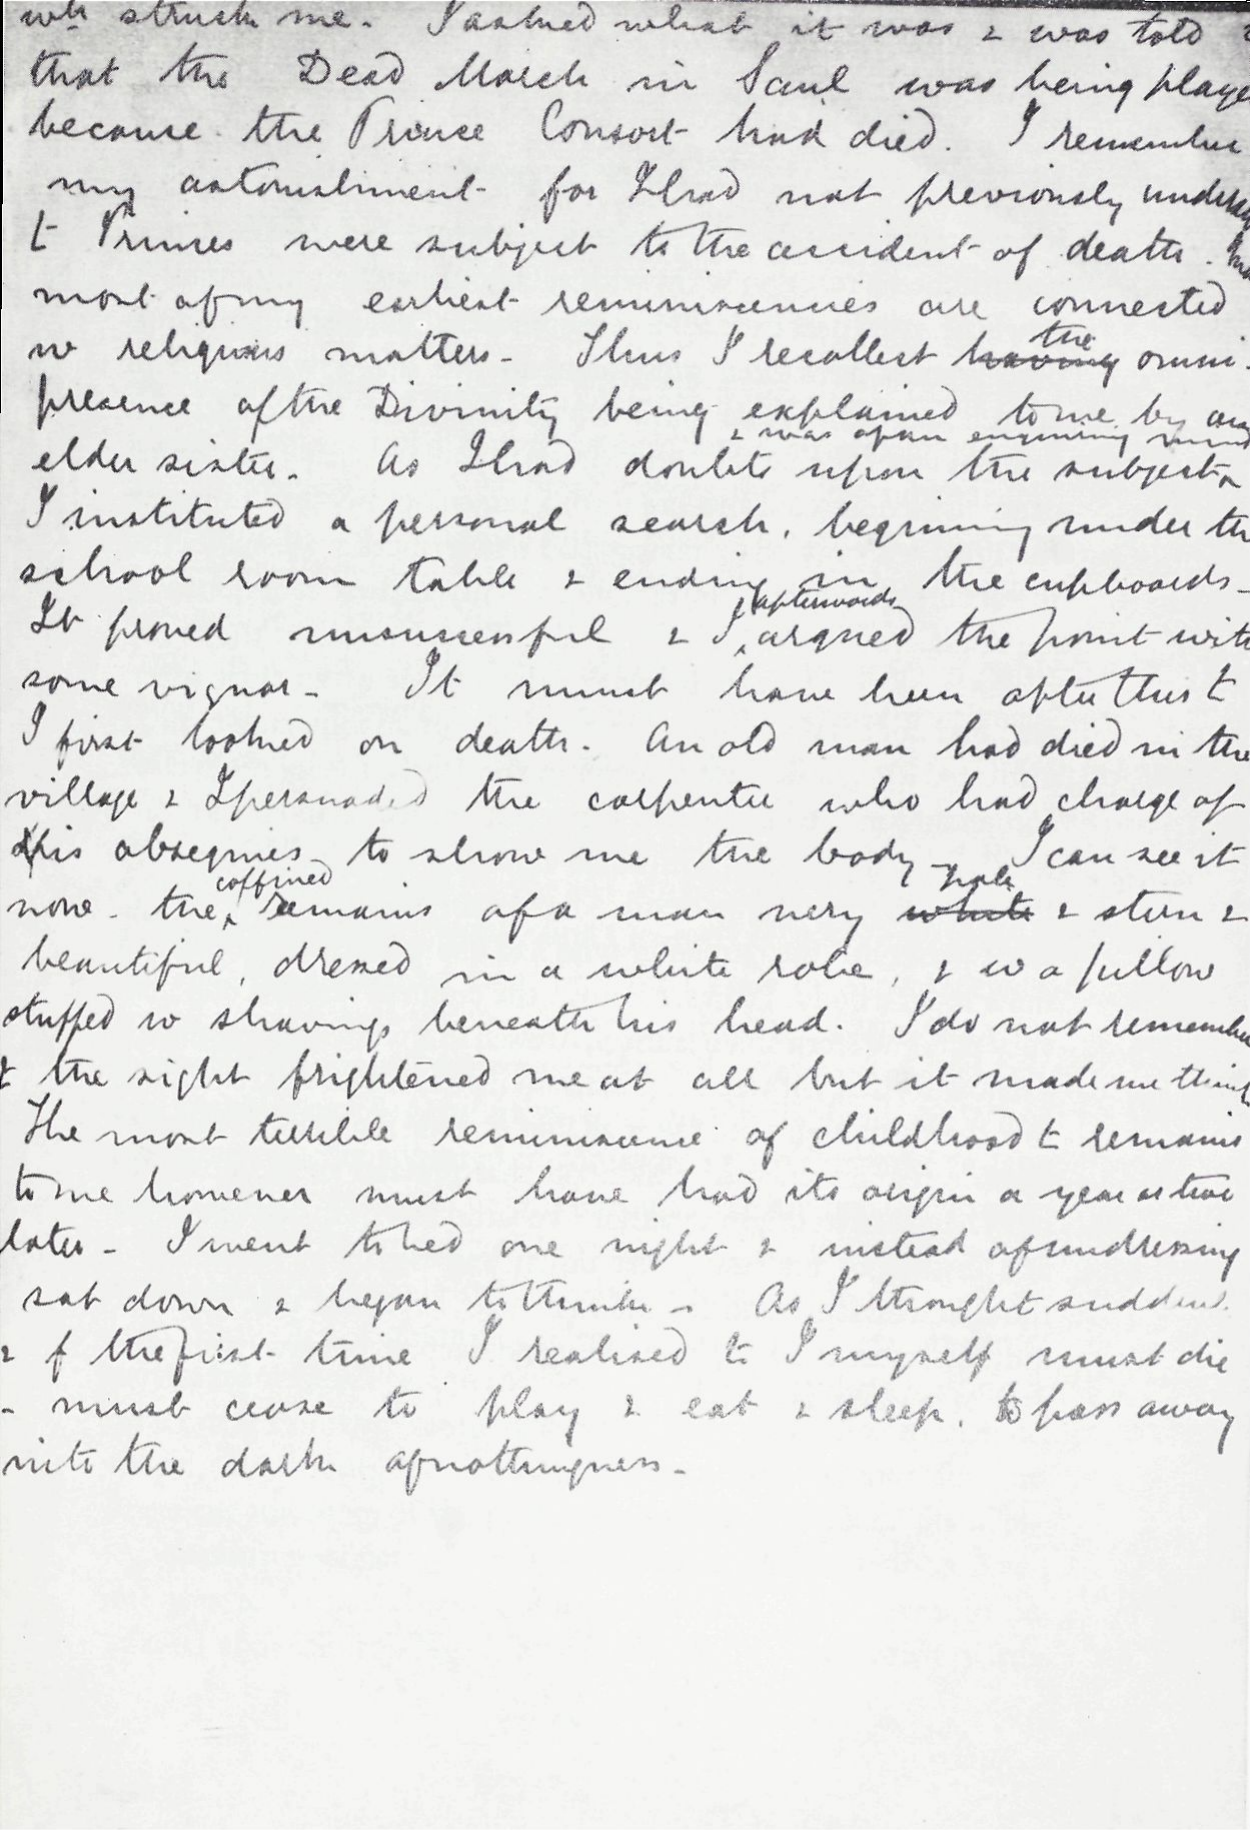 wh struck me. I asked what it was & was told
that the Dead March in Saul was being played
because the Prince Consort had died. I remember
my astonishment for I had not previously
t Princes were subject to the accident of death.
most of my earliest reminiscences are connected
w religious matters - Thus I recollect having the omni-
presence of the Divinity being explained to me by an
& was of an enquiring mind
elder sister. As I had doubts upon the subject
I instituted a personal search, beginning under the
school room table & ending in the cupboards -
afterwards
It proved unsuccessful & I argued the point with
some vigour - It must have been after this t
I first looked on death. An old man had died in the
village & I persuaded the carpenter who had charge of
his obsequies to show me the body - I can see it
coffined pale
now - the remains of a man very white & stern &
beautiful, dressed in a white robe, & w a pillow
stuffed w shavings beneath his head. I do not remember
t the sight frightened me at all but it made me think
The most terrible reminiscence of childhood t remains
to me however must have had its origin a year or two
later - I went to bed one night & instead of undressing
sat down & began to think - As I thought
& f the first time I realised t I myself must die
- must cease to play & eat & sleep, to pass away
into the dark of nothingness -